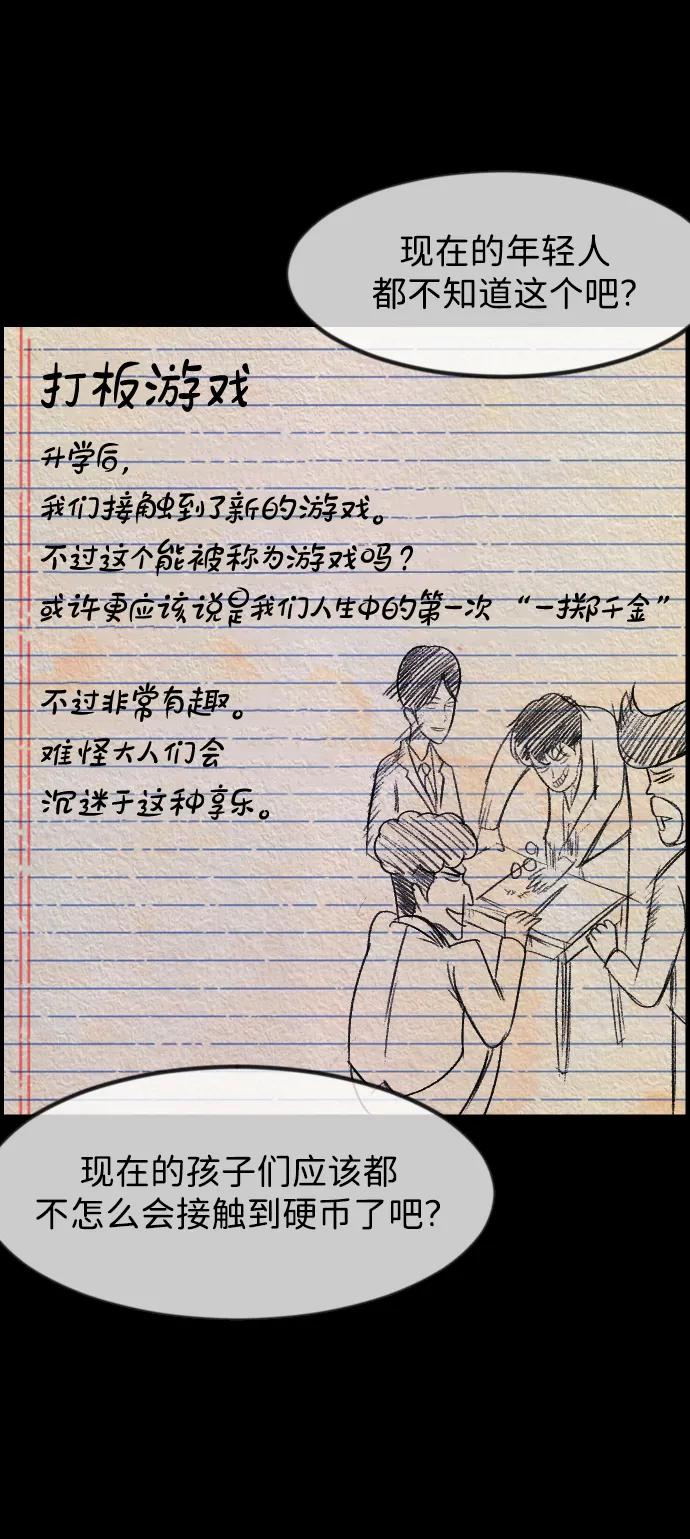 现在的年轻人
都不知道这个吧？
打板游戏
升学后，
我们接触到了新的游戏。
不过这个能被称为游戏吗？
或许更应该说是我们人生中的第一次“一掷千金”
不过非常有趣。
难怪大人们会
沉迷于这种享乐。
现在的孩子们应该都
不怎么会接触到硬币了吧？